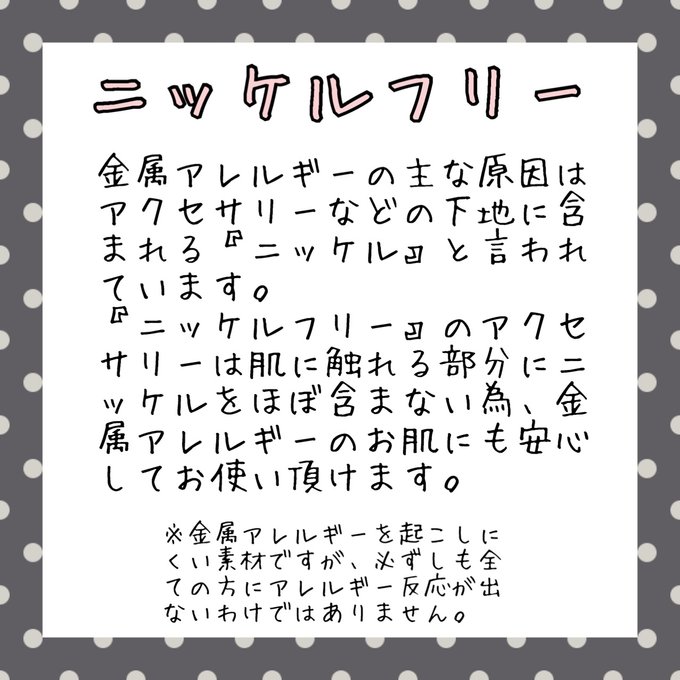 ニッケルフリー
金属アレルギーの主な原因は
アクセサリーなどの下地に含
まれる『ニッケル』と言われ
ています。
『ニッケルフリー』のアクセ
サリーは肌に触れる部分にニ
ッケルをほぼ含まない為、金
属アレルギーのお肌にも安心
してお使い頂けます。
※金属アレルギーを起こしに
くい素材ですが、必ずしも全
ての方にアレルギー反応が出
ないわけではありません。